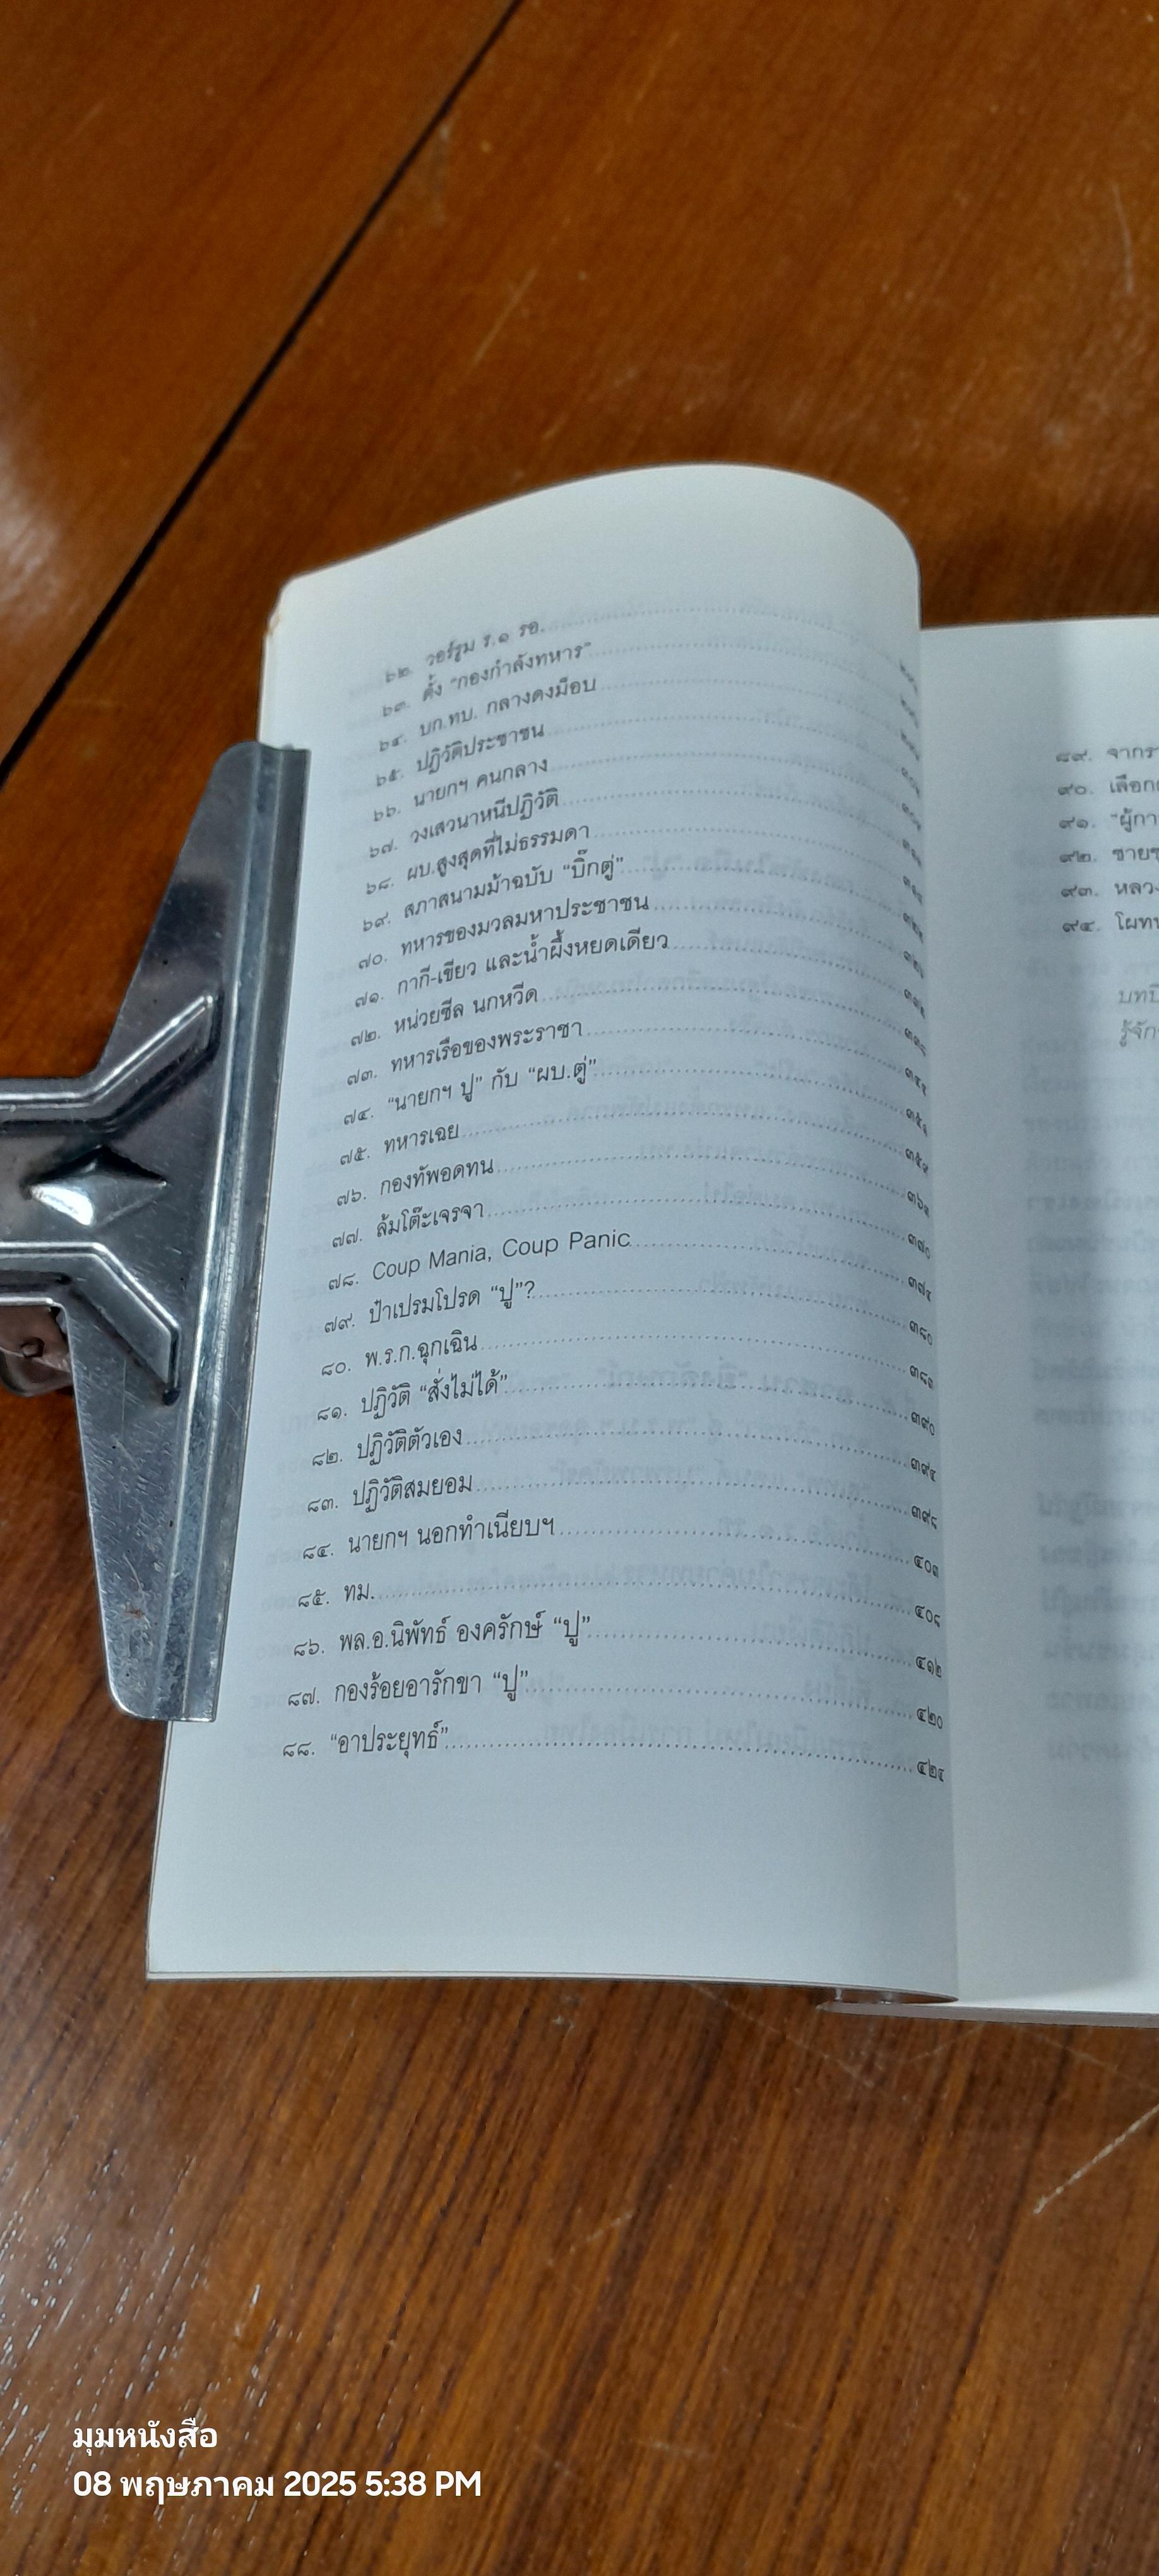 ๖๒. วอร์รูม ร.๑ รอ.
๖๓. ตั้ง "กองกำลังทหาร"
๖๔. บก.ทบ. กลางดงม็อบ
๖๕. ปฏิวัติประชาชน
๖๖. นายกฯ คนกลาง
๖๗. วงเสวนาหนีปฏิวัติ
๖๘. ผบ.สูงสุดที่ไม่ธรรมดา
๖๙. สภาสนามม้าฉบับ "บิ๊กตู่"
๗๐. ทหารของมวลมหาประชาชน
๗๑. กากี-เขียว และน้ำผึ้งหยดเดียว
๗๒. หน่วยซีล นกหวีด
๗๓. ทหารเรือของพระราชา
๗๔. "นายกฯ ปู" กับ "ผบ.ตู่"
๗๕. ทหารเฉย
๗๖. กองทัพอดทน
๗๗. ล้มโต๊ะเจรจา
๗๘. Coup Mania, Coup Panic
๗๙. ป๋าเปรมโปรด "ปู"?
๘๐. พ.ร.ก.ฉุกเฉิน
๘๑. ปฏิวัติ "สั่งไม่ได้" ๓๙๐
๘๒. ปฏิวัติตัวเอง ๓๙๔
๘๓. ปฏิวัติสมยอม ๓๙๘
๘๔. นายกฯ นอกทำเนียบฯ ๔๐๓
๘๕. ทม. ๔๐๘
๘๖. พล.อ.นิพัทธ์ องครักษ์ "ปู" ๔๑๒
๘๗. กองร้อยอารักขา "ปู" ๔๒๐
๘๘. "อาประยุทธ์" ๔๒๔
๘๙. จากรา
๙๐. เลือก
๙๑. "ผู้กา
๙๒. ชายช
๙๓. หลวง
๙๔. โผทห
บทป
รู้จัก
มุมหนังสือ
08 พฤษภาคม 2025 5:38 PM